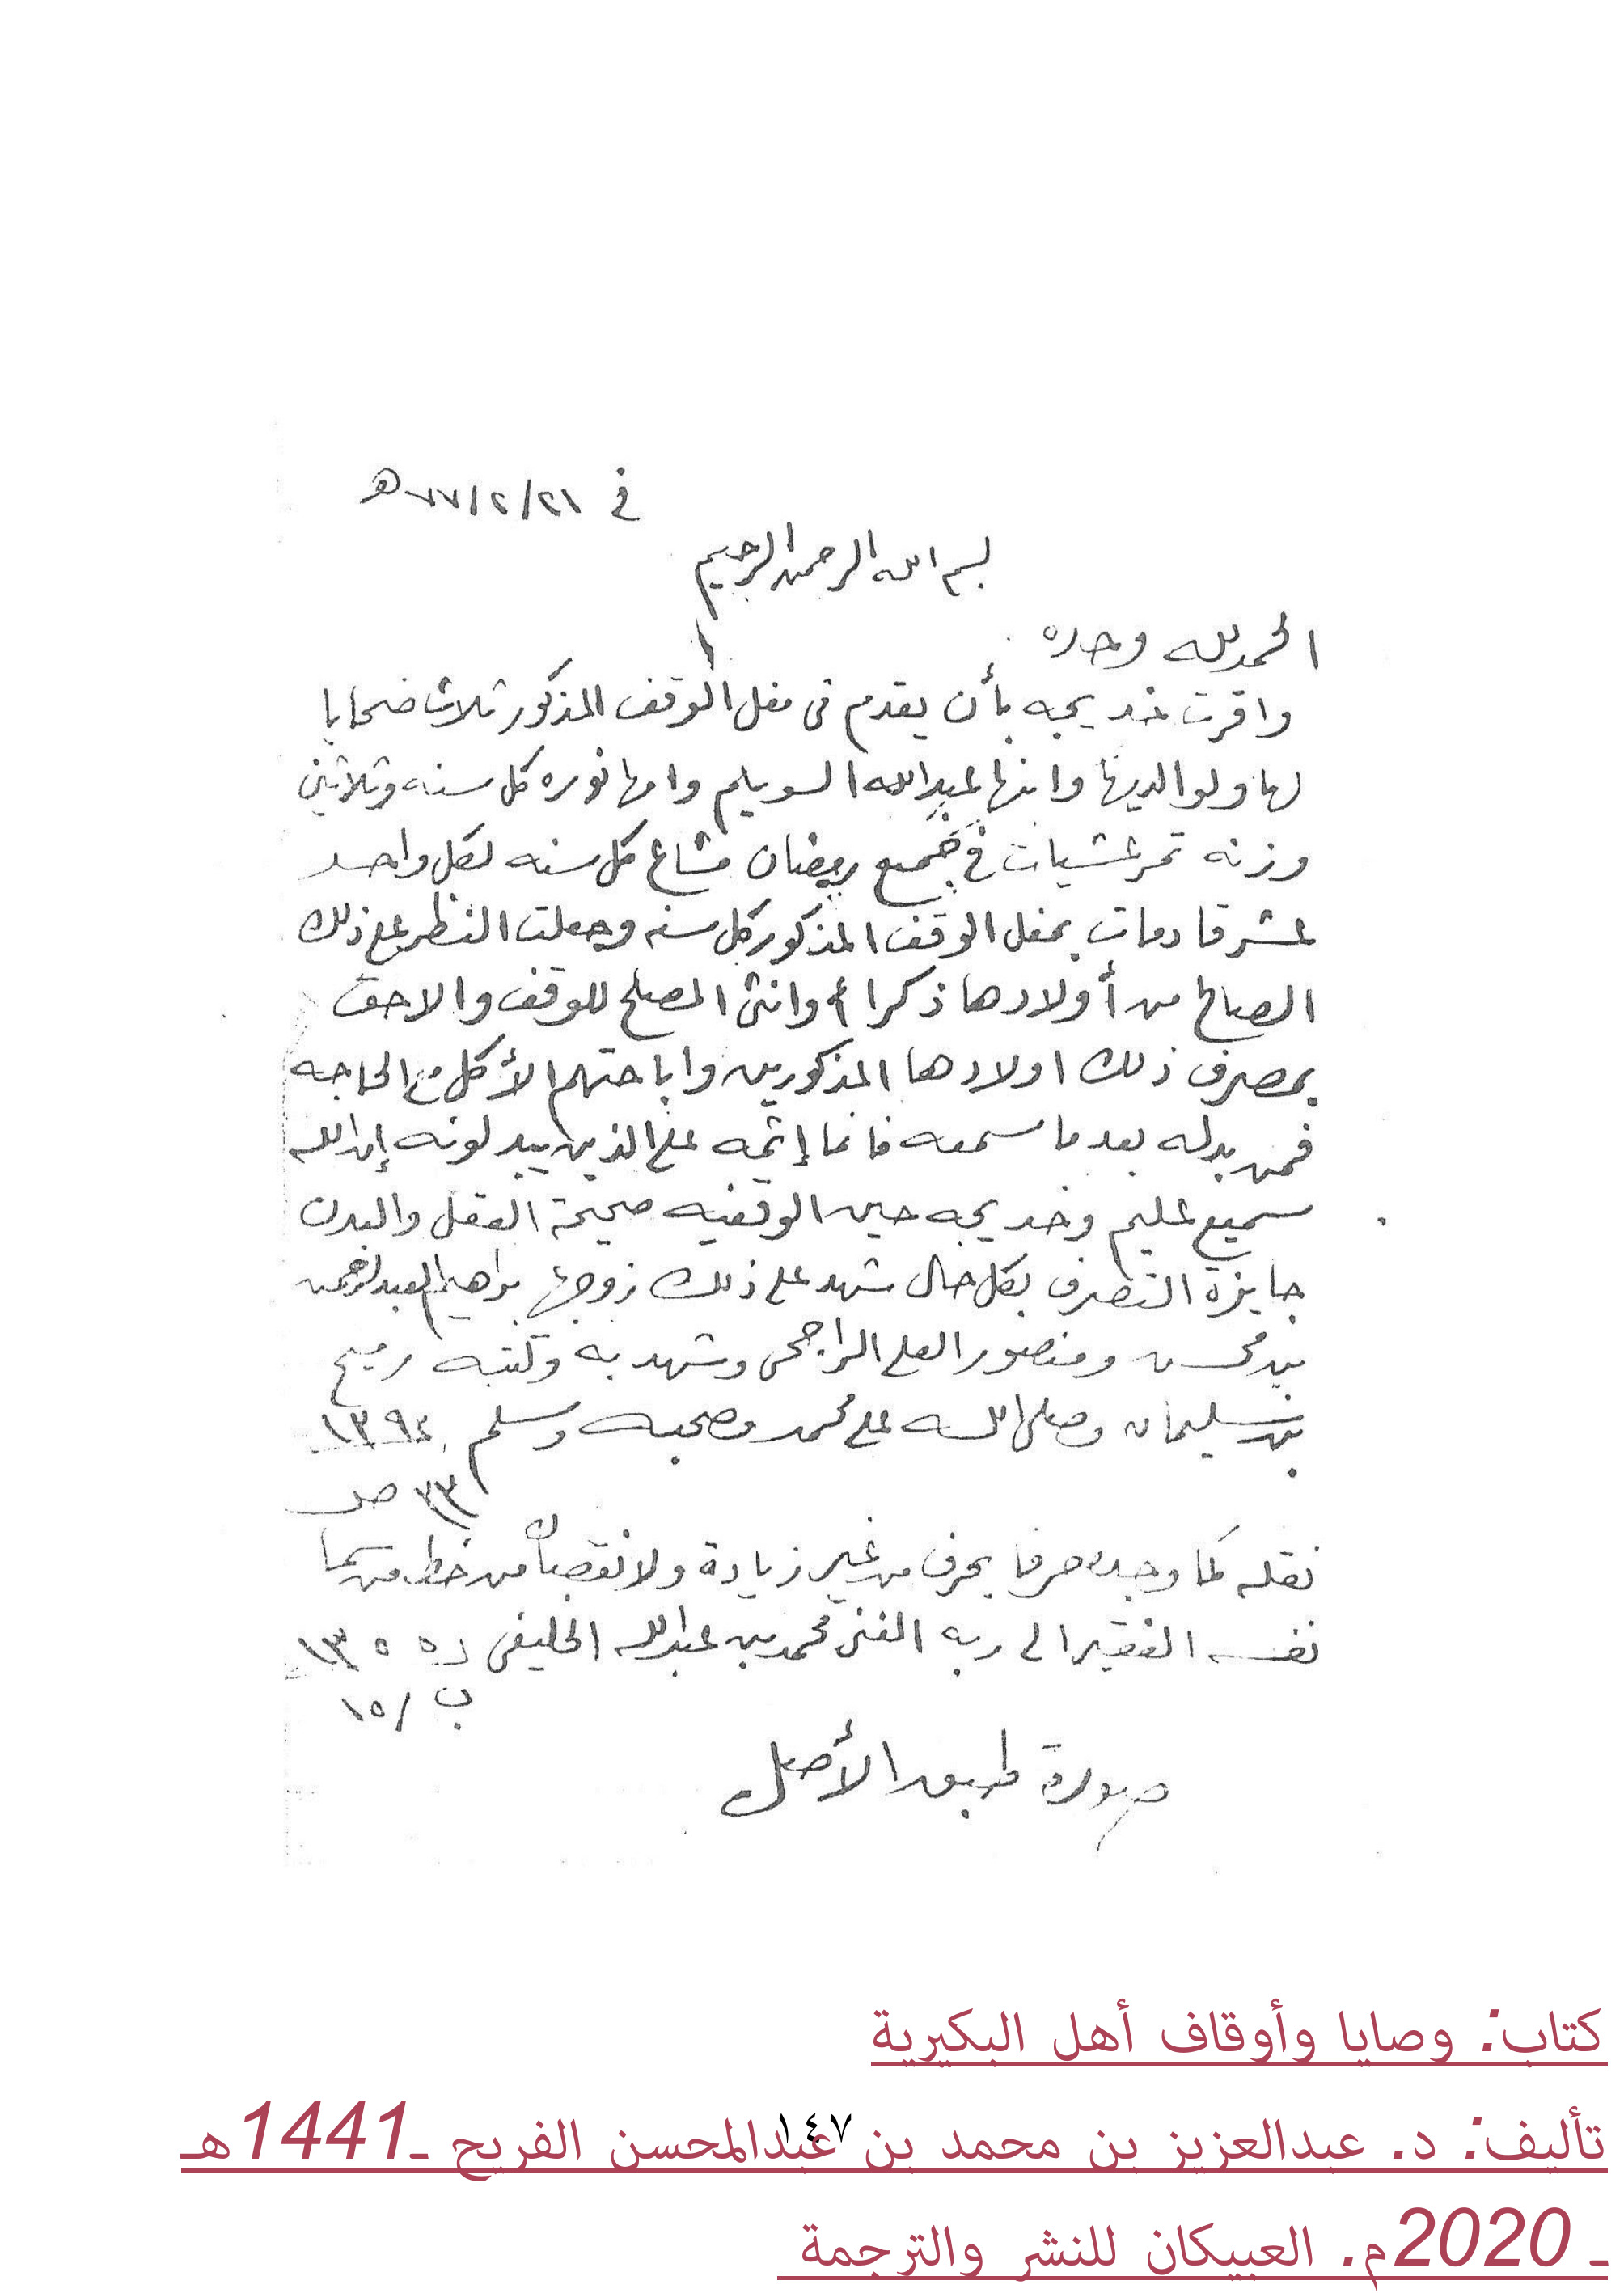 في ٢١/٢/٧٧هـ
بسم الله الرحمن الرحيم
الحمد لله وحده
واقرت خديجه بأن يقدم في مغل الوقف المذكور ثلاث ضحايا
لها ولوالديها وابنها عبدالله السويلم وامها نوره كل سنه وثلاثين
وزنه تمر عشيات في جميع رمضان مشاع كل سنه لكل واحد
عشر قادمات بمغل الوقف المذكور كل سنه وجعلت النظر على ذلك
الصالح من أولادها ذكرا وانثى المصلح للوقف والاحق
بمصرف ذلك اولادها المذكورين واباحتهم الأكل مع الحاجه
فمن بدله بعد ما سمعه فانما إثمه على الذين يبدلونه إن الله
سميع عليم وخديجه حين الوقفيه صحيحة العقل والبدن
جايزة التصرف بكل حال شهد على ذلك زوجها براهيم العبدالرحمن
بن محسن ومنصور العلي الراجحي وشهد به وكتبه رميح
بن سليمان وصلى الله على محمد وصحبه وسلم
نقله كما وجده حرفا بحرف من غير زيادة ولا نقصان من خط من سما
نفسه الفقير الى ربه الغني محمد بن عبدالله الخليفي
ب / ١٥
صورة طبق الأصل
كتاب: وصايا وأوقاف أهل البكيرية
تأليف: د. عبدالعزيز بن محمد بن عبدالمحسن الفريح ـ1441هـ
١٤٧
ـ 2020م. العبيكان للنشر والترجمة